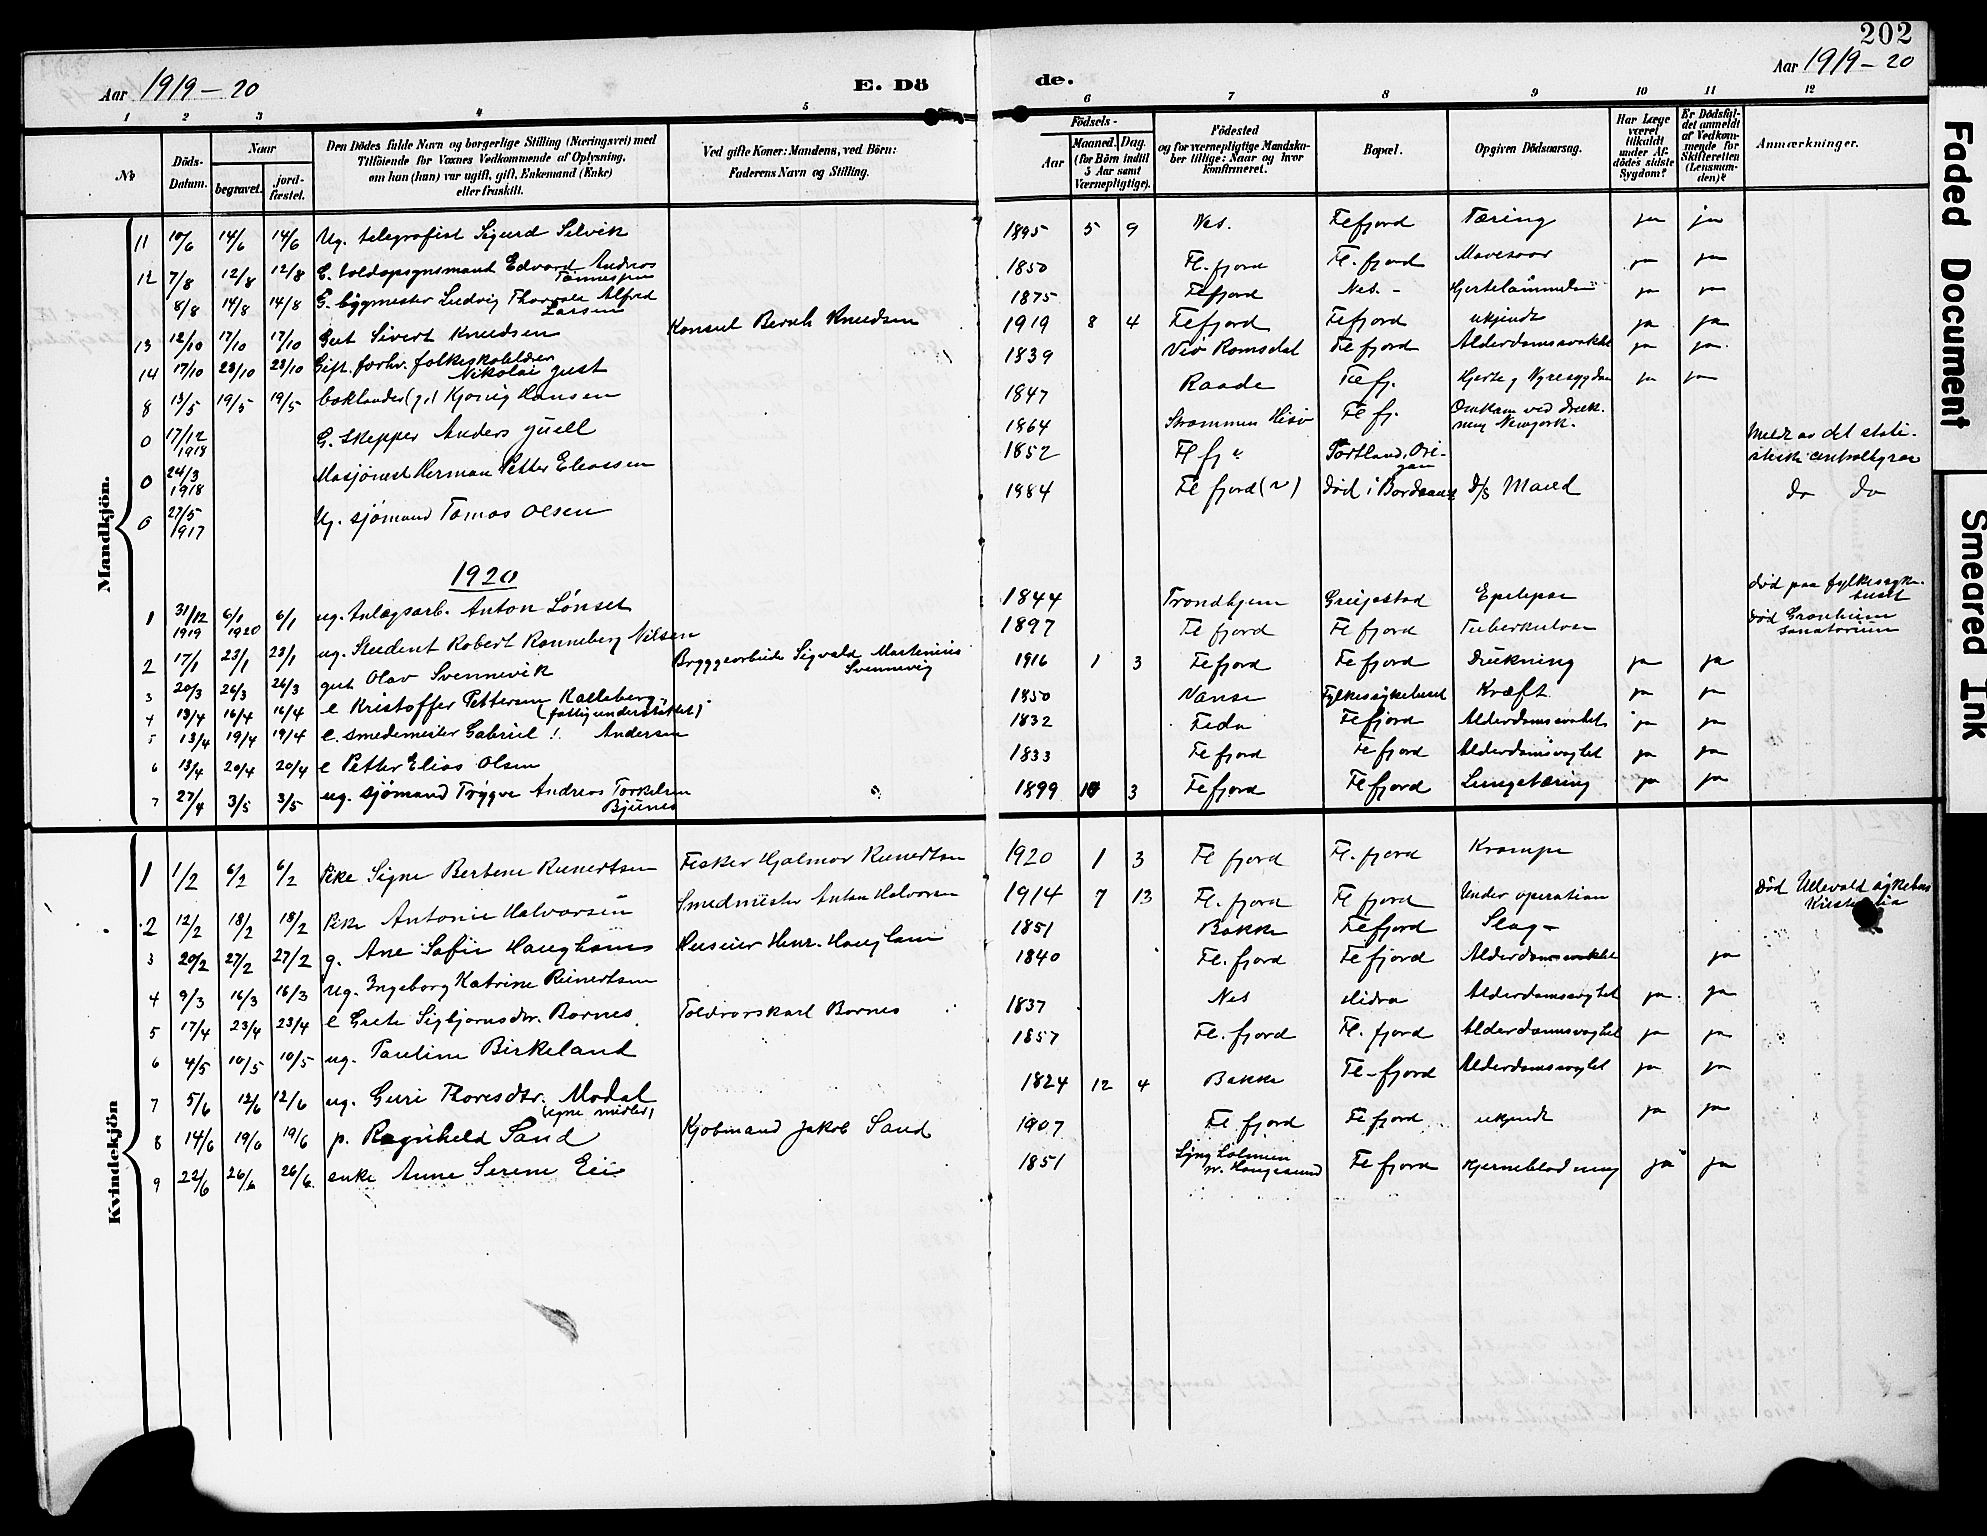 202
Aar 1919-20 E. Dö de. Aar 1919-20
1 2 3 4 5 6 7 8 9 10 11 12
№ Döds-Datum. Naar begravet. jord-fæstet. Den Dödes fulde Navn og borgerlige Stilling (Næringsvei) med Tilföiende for Voxnes Vedkommende af Oplysning, om han (hun) var ugift, gift, Enkemand (Enke) eller fraskilt. Ved gifte Koner: Mandens, ved Börn: Faderens Navn og Stilling. Födsels- Aar Maaned. Dag. (for Börn indtil 5 Aar samt Værnepligtige). Födested og for værnepligtige Mandska-ber tillige: Naar og hvor konfirmeret. Bopæl. Opgiven Dödsaarsag. Har Læge været tilkaldt under Af-dödes sidste Sygdom? Er Dödsfal-det anmeldt af Vedkom-mende for Skifteretten (Lensman-den)? Anmærkninger.
Mandkjön.
11 10/6 14/6 14/6 Ug. telegrafist Sigurd Selvik 1895 5 9 Nes. Flefjord Tæring ja ja
12 7/8 12/8 12/8 E. toldopsynsmand Edvard Andreas Tønnesen 1850 Fl. fjord Fl. fjord Mavesaar ja ja
8/8 14/8 14/8 G. bygmester Ludvig Thorvald Alfred Larsen 1875 Flefjord Nes. - ja ja
13 12/10 17/10 17/10 Gut Sivert Knudsen Konsul Bernh Knudsen 1919 8 4 Flefjord Flefjord ukjendt ja ja
14 17/10 23/10 23/10 Gift. forhv. folkeskolelærer Nikolai Just 1839 Veø Romsdal Flefjord Alderdomssvakhet ja ja
8 13/5 19/5 19/5 Hansen 1847 Raade Flefj. Hjerte og Nyresygdom ja ja
0 17/12 1918 G. skepper Anders Juell 1864 Strømmen Hisø Flefj. Omkom ved drukning Newyork.
0 24/3 1918 Masjonist Herman Petter Eliassen 1852 Fl fj Portland, Oregon Meldt av det statistiske centralbyraa
0 27/5 1917 Ug. sjømand Tomas Olsen 1884 Fl fjord død i Bordeaux D/S do do
1920
1 31/12 1919 6/1 1920 6/1 ug. Anlægsarb. Anton Lønset 1844 Trondhjem Epelepsi død paa fylkessykehuset
2 17/1 23/1 23/1 ug. Student Robert Ronneberg Nilsen 1897 Fl fjord Fl fjord Tuberkulose død Sanatorium
3 20/3 26/3 26/3 gut Olav Svennevik Bryggearbeider Sigvald Martinius Svennevig 1916 1 3 Flefjord Flefjord Drukning ja ja
4 13/4 16/4 16/4 e Kristoffer Pettersen Kalleberg (fattigunderstøttet) 1850 Vanse Fylkessykehuset Kræft ja ja
5 13/4 19/4 19/4 e. smedemester Gabriel Andersen 1832 Feda Flefjord Alderdomssvakhet ja ja
6 13/4 20/4 20/4 e Petter Elias Olsen 1833 Fl fjord Fl fjord Alderdomsvaghet ja ja
7 27/4 3/5 3/5 ug. sjømand Trygve Andreas Torkelsen Bjunes 1899 10 3 Flefjord Flefjord Lungetæring ja ja
Kvindekjön
1 1/2 6/2 6/2 Pike Signe Bertine Reinertsen Fisker Hjalmar Reinertsen 1920 1 3 Fl fjord Fl. fjord Krampe
2 12/2 18/2 18/2 Pike Antonie Halvorsen Smedmester Anton Halvorsen 1914 7 13 Fl. fjord Fl fjord Under operation Død Ullevold sykehus
3 20/2 27/2 27/2 g. Ane Sofie Haughom Henr. Haughom 1851 Bakke Flefjord Slag -
4 9/3 16/3 16/3 Ug. Ingeborg Katrine Reinertsen 1840 Fl. fjord Flefjord Alderdomssvakhet ja
5 17/4 23/4 23/4 e Grete Sigbjornsdtr. Bornes Toldrorskarl Bornes 1837 Nes Hidra Alderdomsvaghet ja ja
6 4/5 10/5 10/5 ug. Pauline Birkeland 1857 Fl. fjord Fl. fjord Alderdomsvaghet ja ja
7 5/6 12/6 12/6 ug. Guri Thoresdtr. Modal (egne midler) 1824 12 4 Bakke Fl-fjord Alderdomsvaghet ja ja
8 14/6 19/6 19/6 p. Ragnhild Sand Kjobmand Jakob Sand 1907 Fl fjord Fl fjord ukjendt ja ja
9 22/6 26/6 26/6 enke Anne Serine Eie 1851 Haugesund Fl fjord Hjerneblødning ja ja
Faded Document
Smeared Ink